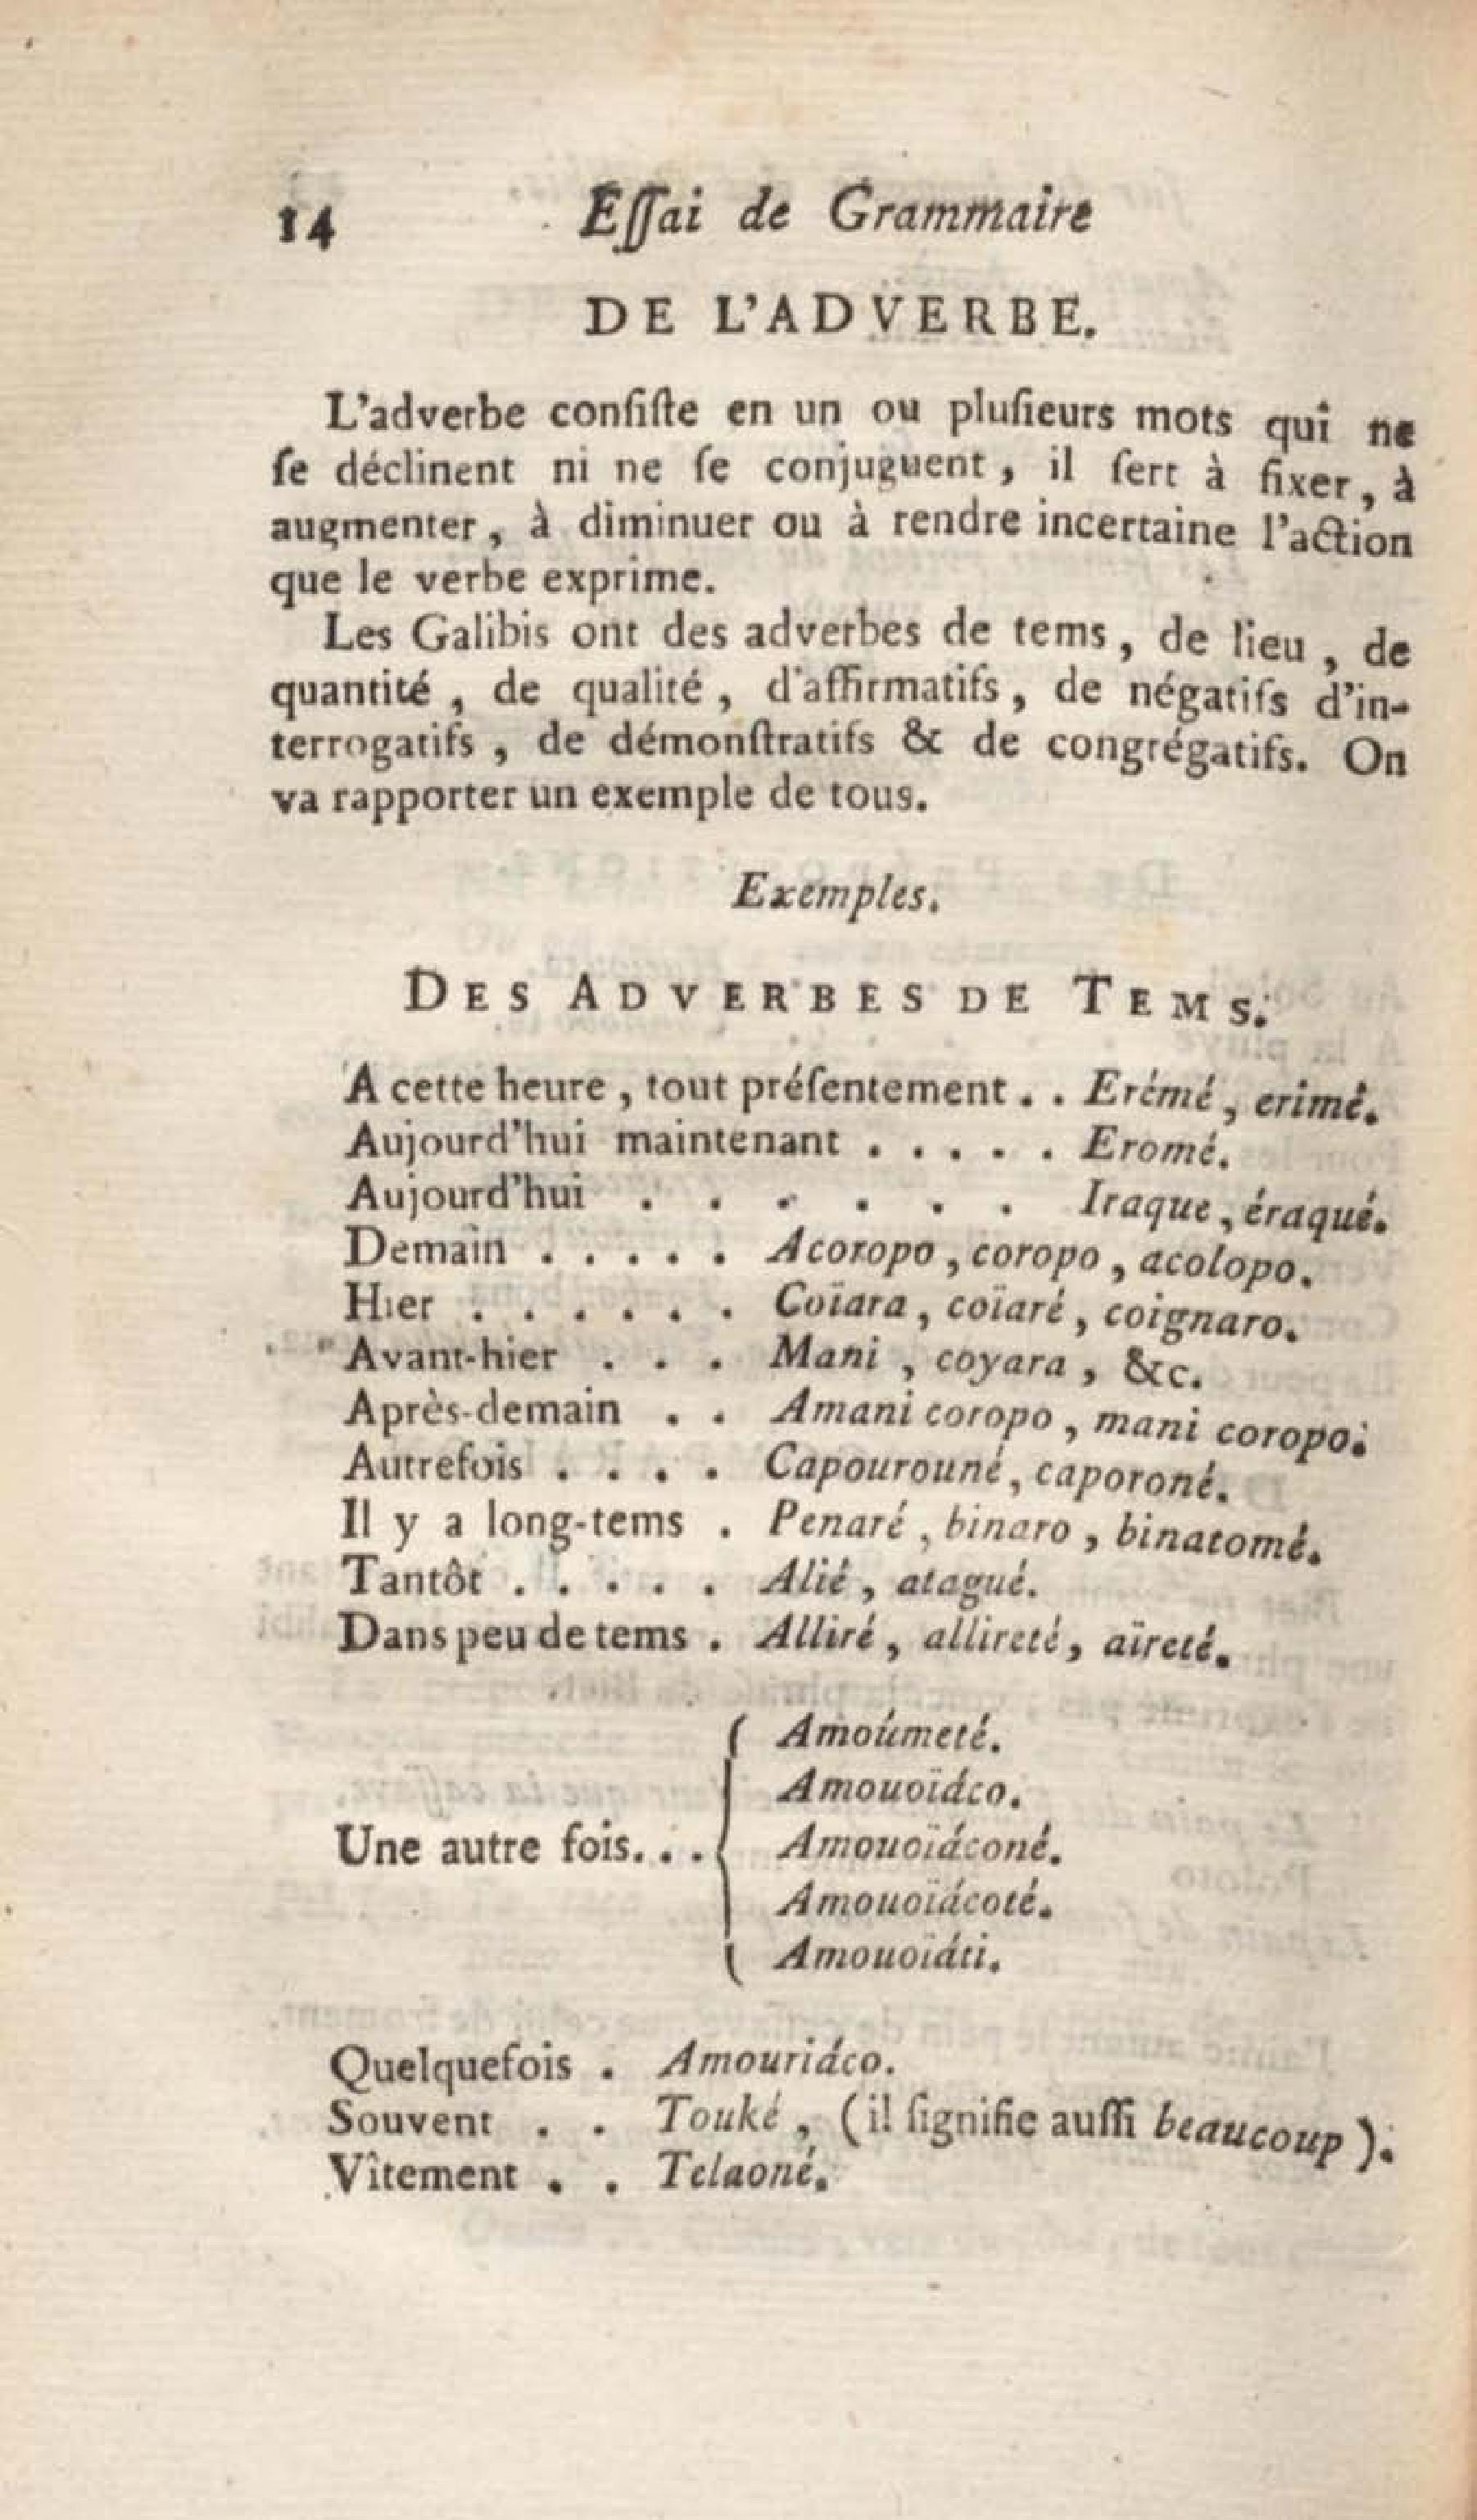 14 Eſſai de Grammaire
DE L'ADVERBE.
L'adverbe conſiſte en un ou pluſieurs mots qui ne
ſe déclinent ni ne ſe conjuguent, il ſert à fixer, à
augmenter, à diminuer ou à rendre incertaine l'action
que le verbe exprime.
Les Galibis ont des adverbes de tems, de lieu, de
quantité, de qualité, d'affirmatifs, de négatifs d'in-
terrogatifs, de démonſtratifs & de congrégatifs. On
va rapporter un exemple de tous.
Exemples.
DES ADVERBES DE TEMS.
A cette heure, tout préſentement . . Erémé, erimé.
Aujourd'hui maintenant . . . . . Eromé.
Aujourd'hui . . . . . . Iraque, éraqué.
Demain . . . . . Acoropo, coropo, acolopo.
Hier . . . . . . Coïara, coïaré, coignaro.
Avant-hier . . . Mani, coyara, &c.
Après-demain . . Amani coropo, mani coropo.
Autrefois . . . . Capourouné, caporoné.
Il y a long-tems . Penaré, binaro, binatomé.
Tantôt . . . . . Alié, atagué.
Dans peu de tems . Alliré, allireté, aïreté.
Amoúmeté.
Amouoïáco.
Une autre fois. . . Amouoïáconé.
Amouoïácoté.
Amouoïáti.
Quelquefois . Amouriáco.
Souvent . . Touké, (il ſignifie auſſi beaucoup).
Vîtement . . Telaoné.